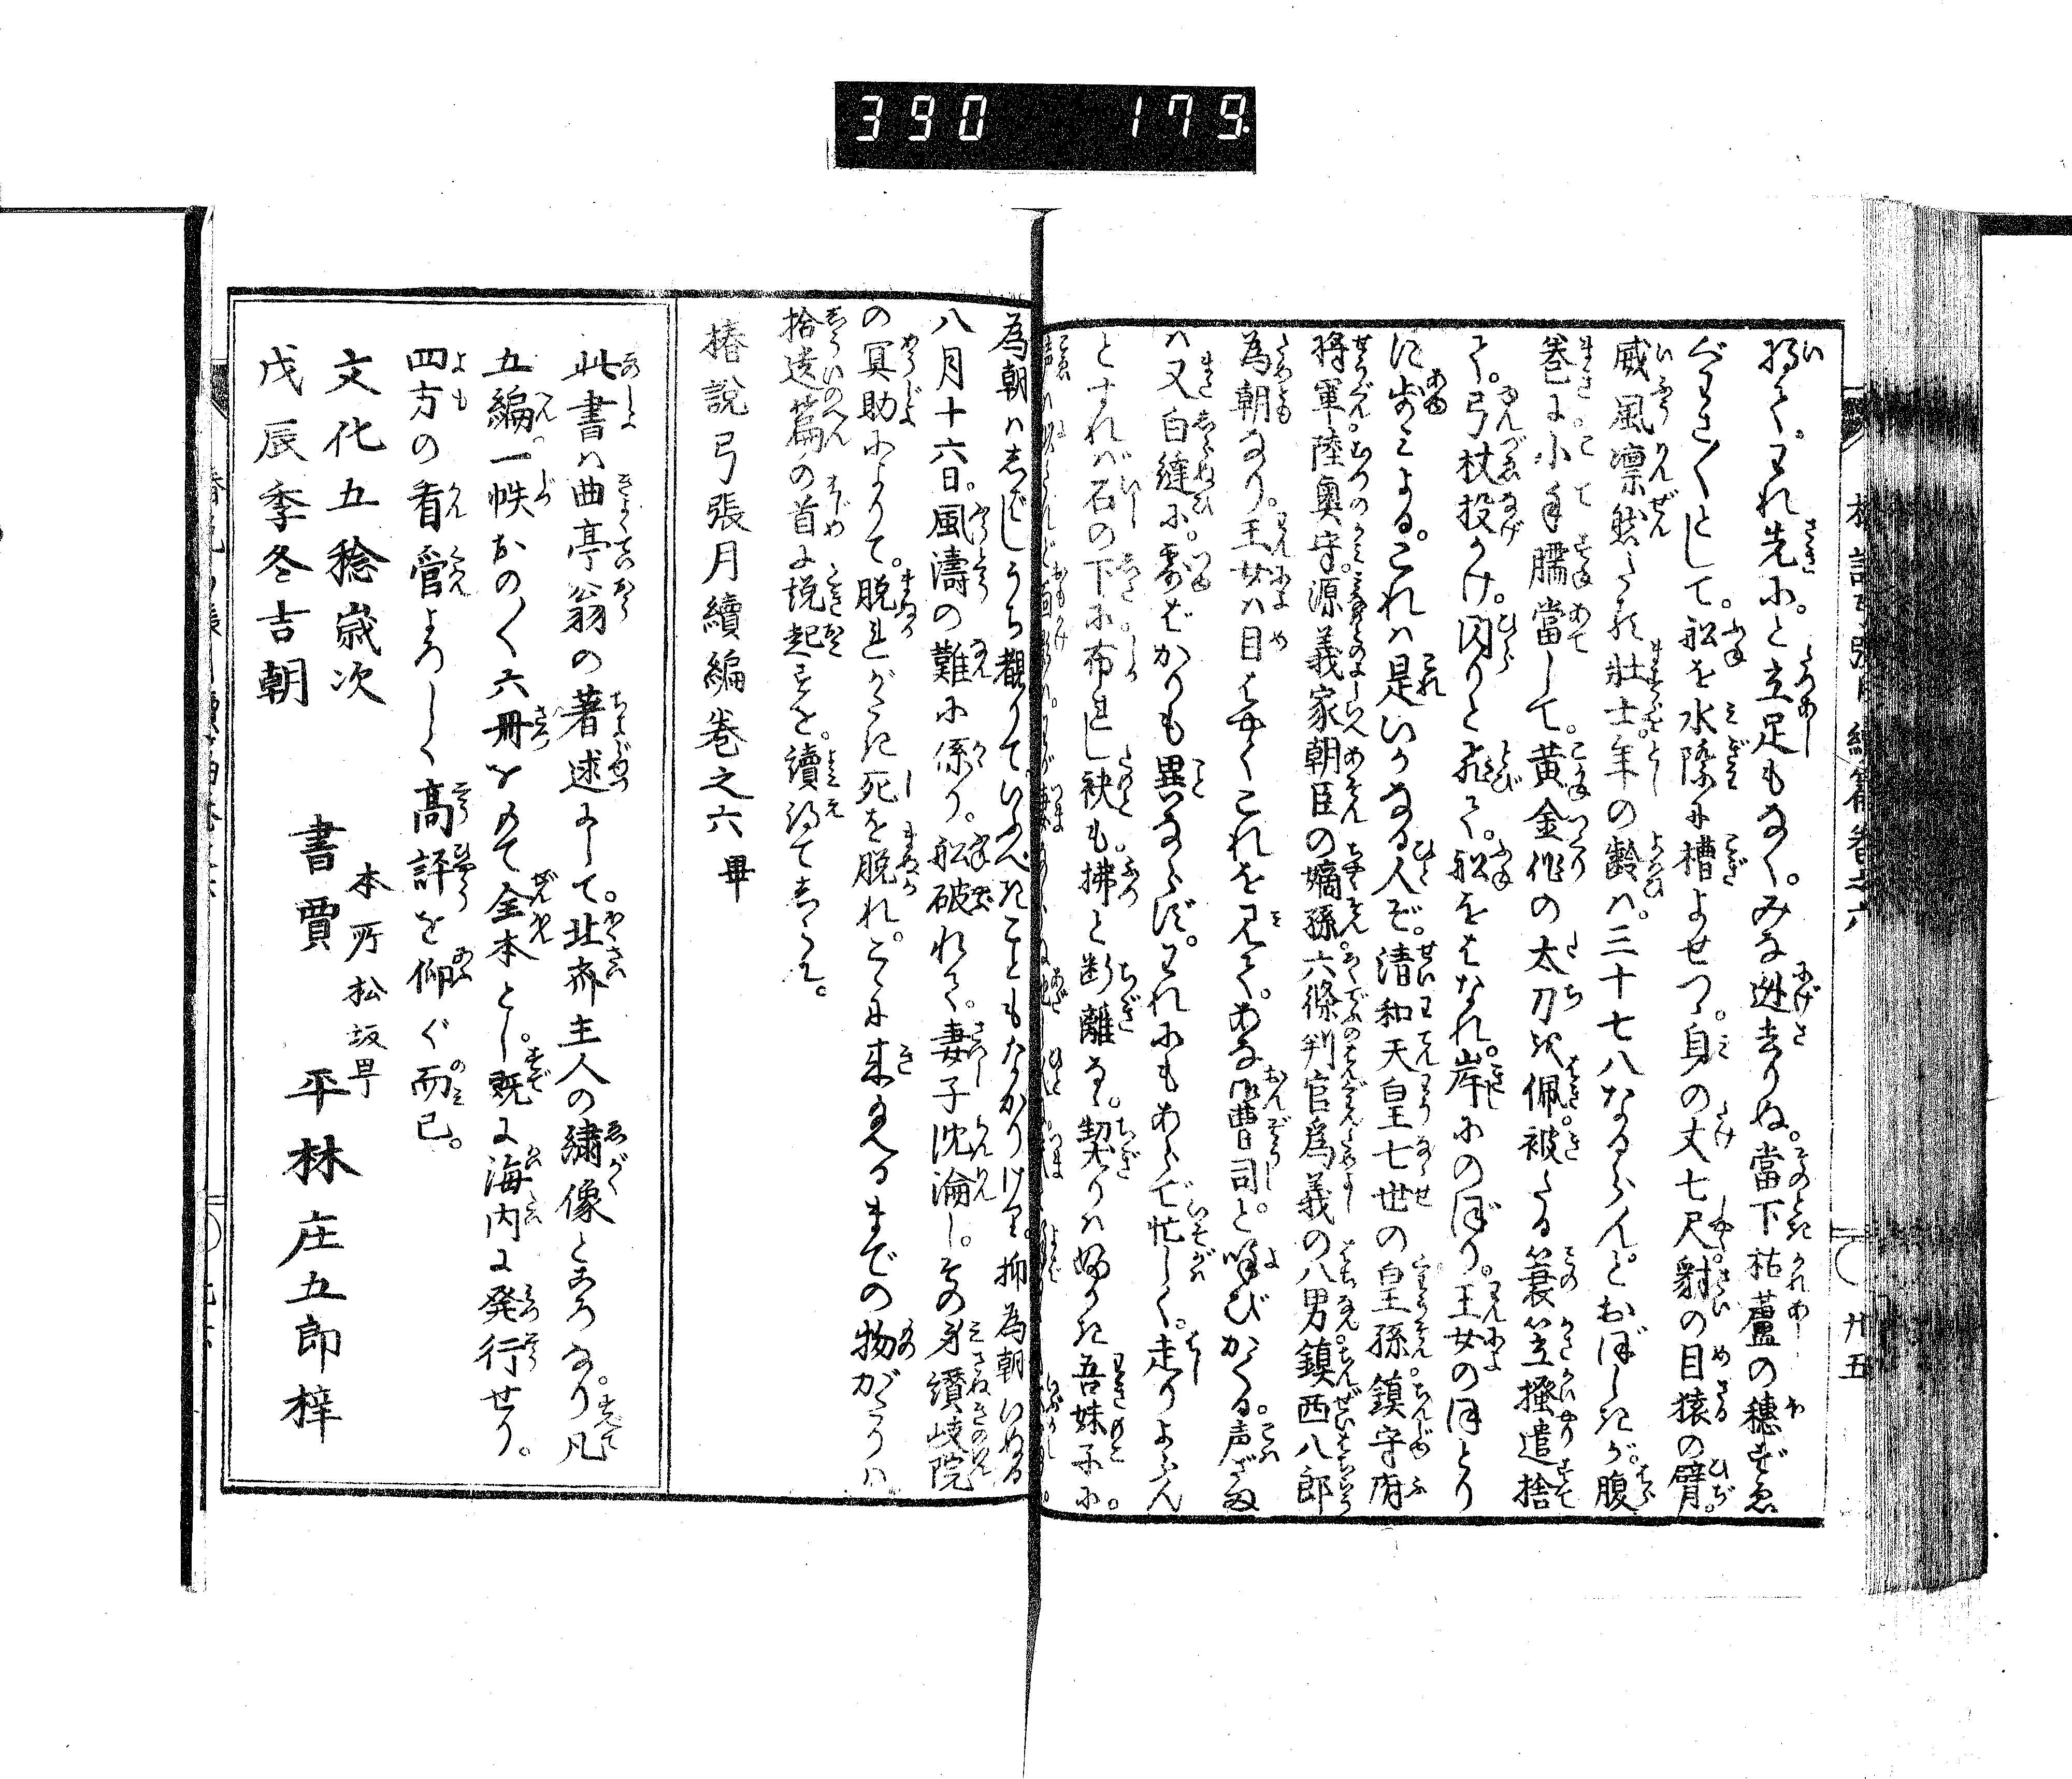 390 179
われ先に。と立足もなく。みな迯去りぬ。當下枯蘆の穂ずゑ
として。舩を水際に槽よせつ。身の丈七尺豺の目猿の臂。
威風凛然たる壮士。年の齢は。三十七八なるらん。とおぼしきが。腹
巻に小手臑當して。黄金作の太刀を佩。被たる簔笠掻遣捨
て。弓杖投かけ。閃りと飛て。舩をはなれ。岸にのぼり。王女のほとり
に歩みよる。これは是いかなる人ぞ。清和天皇七世の皇孫。鎮守府
将軍陸奥守。源義家朝臣の嫡孫。六條判官為義の八男。鎮西八郎
為朝なり。王女は目はやくこれを見て。あな御曹司。と喚びかくる。声ざま
は又白縫に。露ばかりも異ならず。われにもあらで忙しく。走りよらん
とすれば石の下に布れし袂も。拂と断離る。契りは
為朝はしばしうち観りていふべきこともなかりけり。抑為朝いぬる
八月十六日。風濤の難に係り。舩破れて。妻子沈淪し。その身讃岐院
の冥助によりて。脱れがたき死を脱れ。こゝに来るまでの物がたりは。
拾遺篇の首に説起すを。讀得てしらん。
椿説弓張月續編巻之六畢
此書は曲亭翁の著述にして。北斎主人の繍像ところなり。凡
五編一帙おの〳〵六冊をもて全本とし。既に海内に発行せり。
四方の看官よろしく高評を仰ぐ而已。
文化五稔歳次
戊辰季冬吉朝
本所松坂町
書賈 平林庄五郎梓
廿五